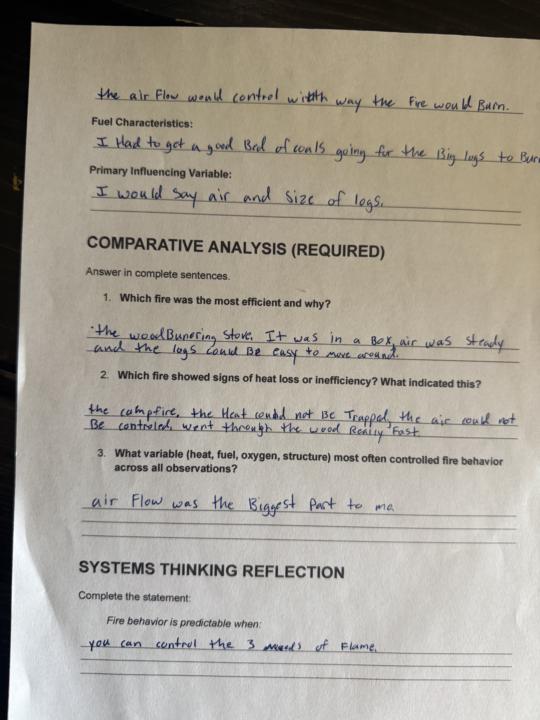 the air Flow would control witth way the Fire would Burn.
Fuel Characteristics:
I Had to get a good Bed of coals going for the Big logs to Burn
Primary Influencing Variable:
I would say air and size of logs.
COMPARATIVE ANALYSIS (REQUIRED)
Answer in complete sentences.
1. Which fire was the most efficient and why?
the woodBunering Stove. It was in a Box, air was steady
and the logs could Be easy to move around.
2. Which fire showed signs of heat loss or inefficiency? What indicated this?
the campfire, the Heat could not Be Trapped, the air could not
Be controled, went through the wood Really Fast.
3. What variable (heat, fuel, oxygen, structure) most often controlled fire behavior
across all observations?
air Flow was the Biggest Part to me.
SYSTEMS THINKING REFLECTION
Complete the statement:
Fire behavior is predictable when:
you can control the 3 needs of Flame.